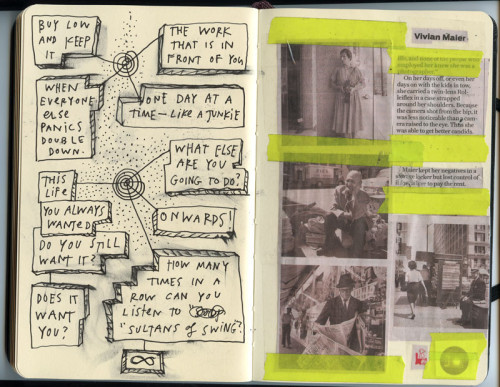 BUY LOW
AND KEEP
IT
THE WORK
THAT IS IN
FRONT OF YOU
WHEN
EVERYONE
ELSE
PANICS
DOUBLE
DOWN.
ONE DAY AT A
TIME—LIKE A JUNKIE
WHAT ELSE
ARE YOU
GOING TO DO?
THIS
LIFE
YOU ALWAYS
WANTED
DO YOU STILL
WANT IT?
ONWARDS!
DOES IT
WANT
YOU?
HOW MANY
TIMES IN A
ROW CAN YOU
LISTEN TO
"SULTANS OF SWING"?
∞
Vivian Maier
On her days off, or even her
days on with the kids in tow,
she carried a twin-lens Rol-
leiflex in a case strapped
around her shoulders. Because
the camera shot from the hip, it
was less noticeable than a cam-
era raised to the eye. Thus she
was able to get better candids.
Maier kept her negatives in a
storage locker but lost control of
to pay the rent.